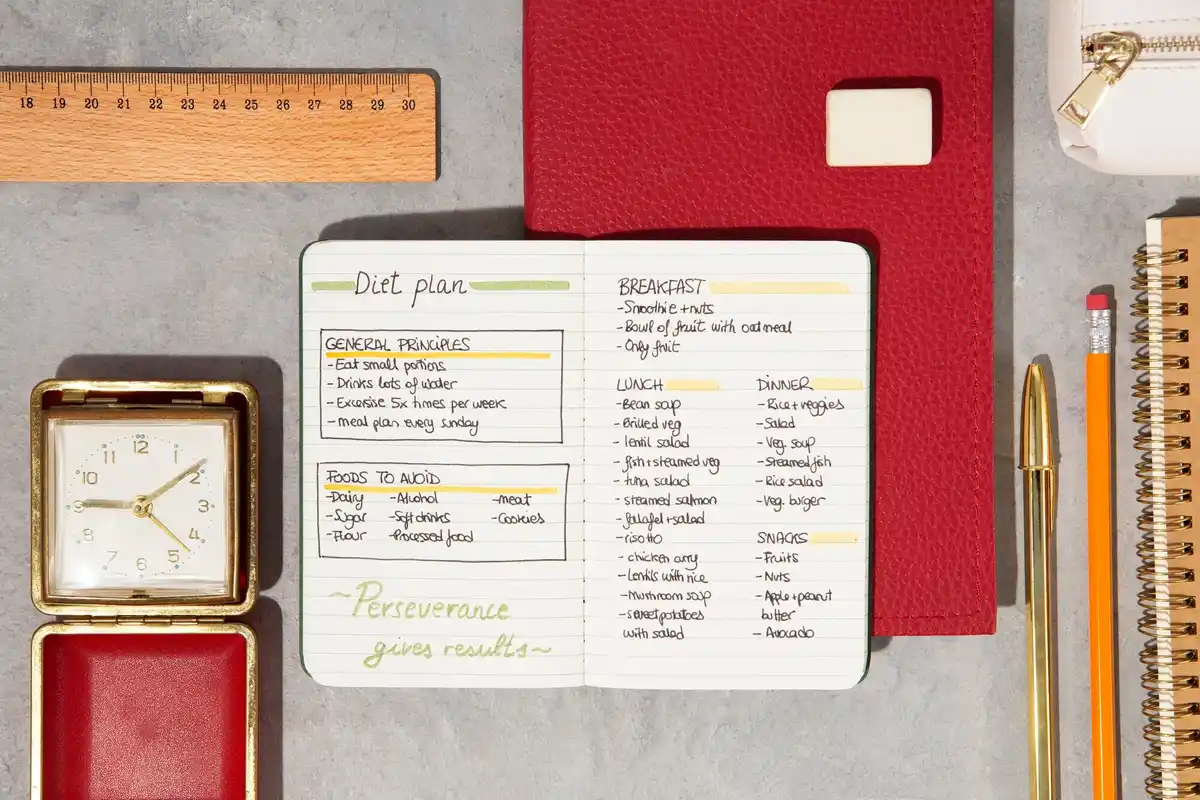 18 19 20 21 22 23 24 25 26 27 28 29 30
Diet plan
GENERAL PRINCIPLES
-Eat small portions
-Drinks lots of water
-Excersise 5x times per week
-meal plan every sunday
FOODS TO AVOID
-Dairy -Alcohol -meat
-Sugar -Soft drinks -Cookies
-Flour -Processed food
~Perseverance
gives results~
BREAKFAST
-Smoothie +nuts
-Bowl of fruit with oatmeal
-Only fruit
LUNCH
-Bean soup
-Grilled veg
-lentil salad
-fish+steamed veg
-tuna salad
-steamed salmon
-falafel+salad
-risotto
-chicken curry
-Lentils with rice
-Mushroom soup
-sweet potatoes
with salad
DINNER
-Rice+veggies
-Salad
-Veg. soup
-Steamed fish
-Rice salad
-Veg. burger
SNACKS
-Fruits
-Nuts
-Apple+peanut
butter
-Avocado
12
11 1
10
9 3
8 4
7
6